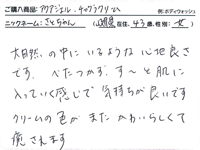 ご購入商品:アクアジェル・チャップクリーム 例:ボディウォッシュ
ニックネーム:さとちゃん (在住, 43歳, 性別:女)
大自然の中にいるような心地良さ
です。べたつかず、す〜と肌に
入っていく感じで気持ちが良いです
クリームの色がまたかわいらしくて
癒されます